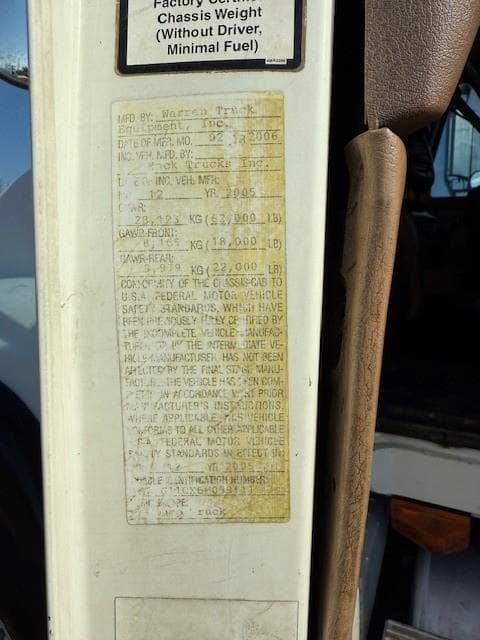 Factory Certified
Chassis Weight
(Without Driver,
Minimal Fuel)
MFD. BY: Warren Truck
Equipment, Inc.
DATE OF MFR: MO. 02 YR 2006
INC. VEH. MFD. BY:
Mack Trucks Inc.
DATE OF INC. VEH. MFR:
12 YR. 2005
GVWR:
28,123 KG (62,000 LB)
GAWR-FRONT:
8,165 KG (18,000 LB)
GAWR-REAR:
9,979 KG (22,000 LB)
CONFORMITY OF THE CHASSIS-CAB TO
U.S.A. FEDERAL MOTOR VEHICLE
SAFETY STANDARDS, WHICH HAVE
BEEN PREVIOUSLY FULLY CERTIFIED BY
THE INCOMPLETE VEHICLE MANUFAC-
TURER OR BY THE INTERMEDIATE VE-
HICLE MANUFACTURER, HAS NOT BEEN
AFFECTED BY THE FINAL STAGE MANU-
FACTURER. THE VEHICLE HAS BEEN COM-
PLETED IN ACCORDANCE WITH PRIOR
MANUFACTURER'S INSTRUCTIONS,
WHERE APPLICABLE. THIS VEHICLE
CONFORMS TO ALL OTHER APPLICABLE
U.S.A. FEDERAL MOTOR VEHICLE
SAFETY STANDARDS IN EFFECT IN:
12 YR. 2005
VEHICLE IDENTIFICATION NUMBER:
TYPE:
Truck